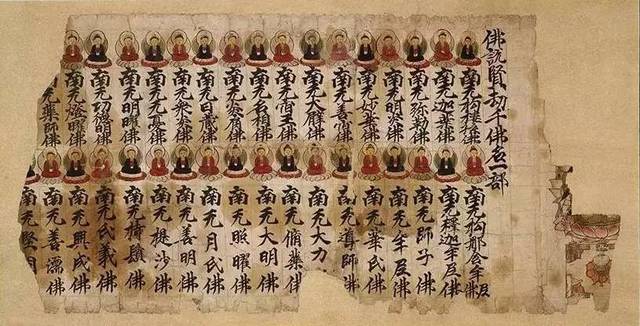 佛說賢劫千佛名一部
南无拘樓孫佛
南无拘那含牟尼
南无迦葉佛
南无釋迦牟尼佛
南无弥勒佛
南无師子佛
南无明炎佛
南无牟尼佛
南无妙華佛
南无華氏佛
南无善宿佛
南无導師佛
南无大臂佛
南无大力
南无宿王佛
南无脩藥佛
南无名相佛
南无大明佛
南无炎佛
南无照曜佛
南无日藏佛
南无月氏佛
南无衆炎佛
南无善明佛
南无无憂佛
南无提沙佛
南无明曜佛
南无持鬘佛
南无功德明佛
南无氏義佛
南无燈曜佛
南无興成佛
无藥師佛
南无善濡佛
南无堅